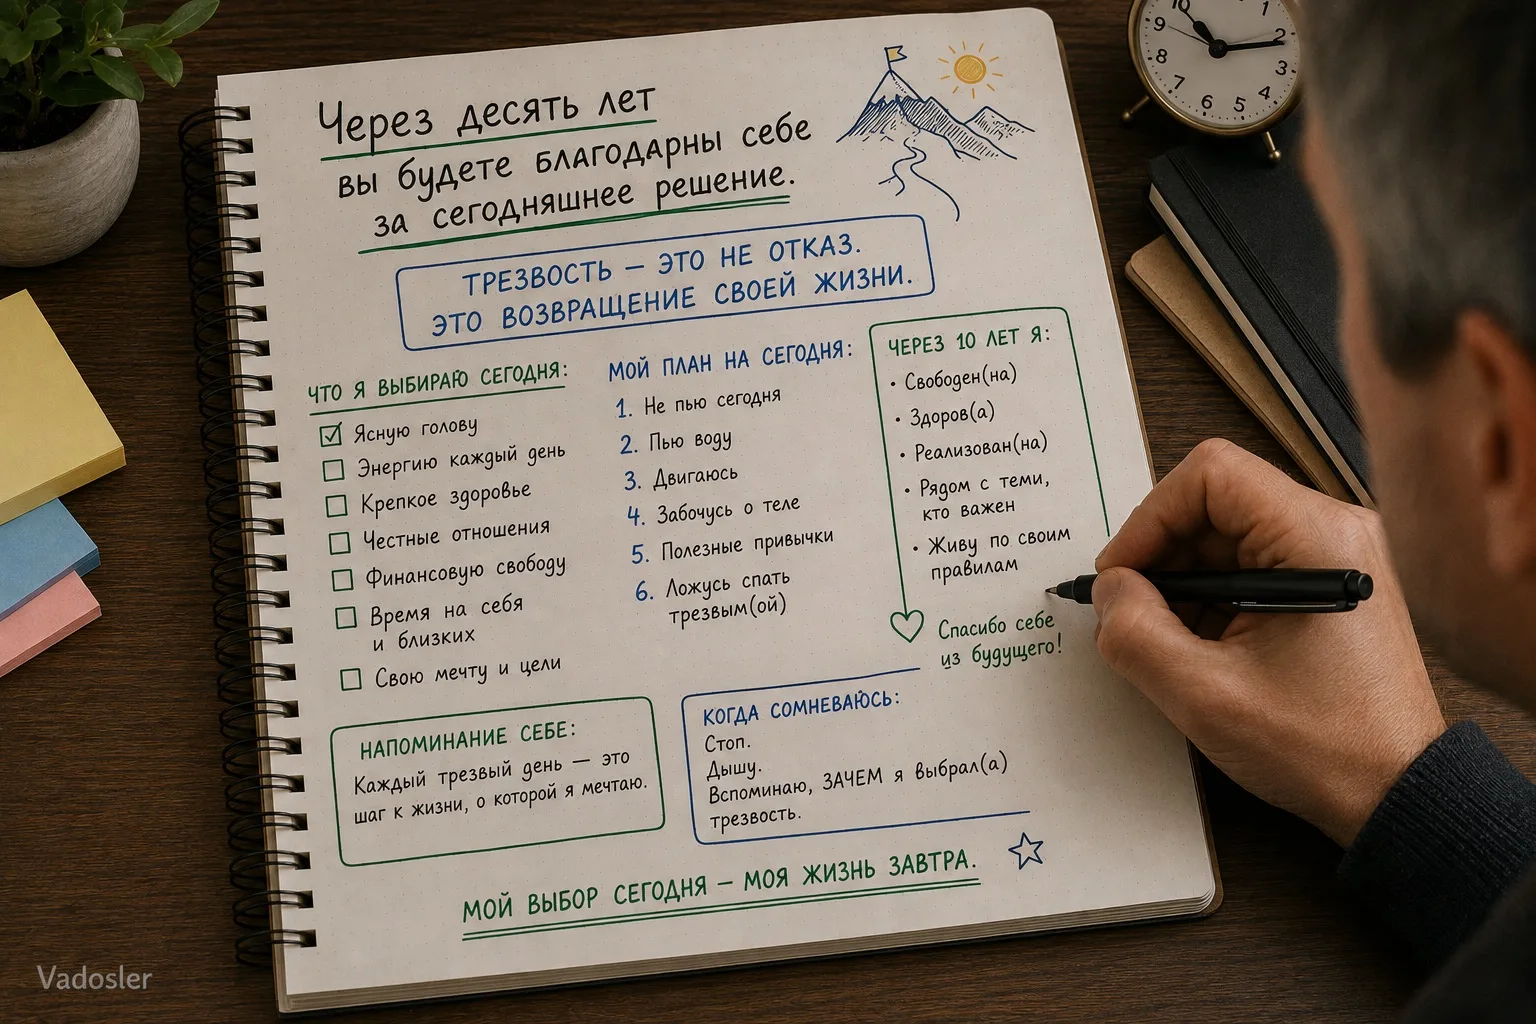 Через десять лет
вы будете благодарны себе
за сегодняшнее решение.
ТРЕЗВОСТЬ – ЭТО НЕ ОТКАЗ.
ЭТО ВОЗВРАЩЕНИЕ СВОЕЙ ЖИЗНИ.
ЧТО Я ВЫБИРАЮ СЕГОДНЯ:
Ясную голову
Энергию каждый день
Крепкое здоровье
Честные отношения
Финансовую свободу
Время на себя
и близких
Свою мечту и цели
МОЙ ПЛАН НА СЕГОДНЯ:
1. Не пью сегодня
2. Пью воду
3. Двигаюсь
4. Забочусь о теле
5. Полезные привычки
6. Ложусь спать
трезвым(ой)
ЧЕРЕЗ 10 ЛЕТ Я:
• Свободен(на)
• Здоров(а)
• Реализован(на)
• Рядом с теми,
кто важен
• Живу по своим
правилам
Спасибо себе
из будущего!
НАПОМИНАНИЕ СЕБЕ:
Каждый трезвый день – это
шаг к жизни, о которой я мечтаю.
КОГДА СОМНЕВАЮСЬ:
Стоп.
Дышу.
Вспоминаю, ЗАЧЕМ я выбрал(а)
трезвость.
МОЙ ВЫБОР СЕГОДНЯ – МОЯ ЖИЗНЬ ЗАВТРА.
1
2
3
4
5
6
7
8
9
10
Vadosler